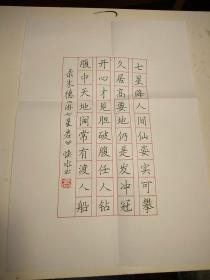 七星降人间仙姿实可攀
久居高要地仍是发冲冠
开心才見胆破腹任人钻
腹中天地阔常有渡人船
录朱德游七星岩